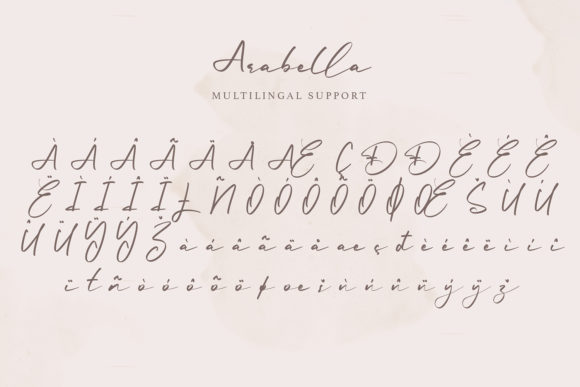 Arabella
MULTILINGAL SUPPORT
À Á Â Ã Ä Å Æ Ç Đ Ð È É Ê
Ë Ì Í Î Ï Ł Ñ Ò Ó Ô Õ Ö Ø Œ Š Ù Ú
Û Ü Ÿ Ý Ž à á â ã ä å æ ç đ è é ê ë ì í î
ï ł ñ ò ó ô õ ö ø œ š ù ú û ü ý ÿ ž